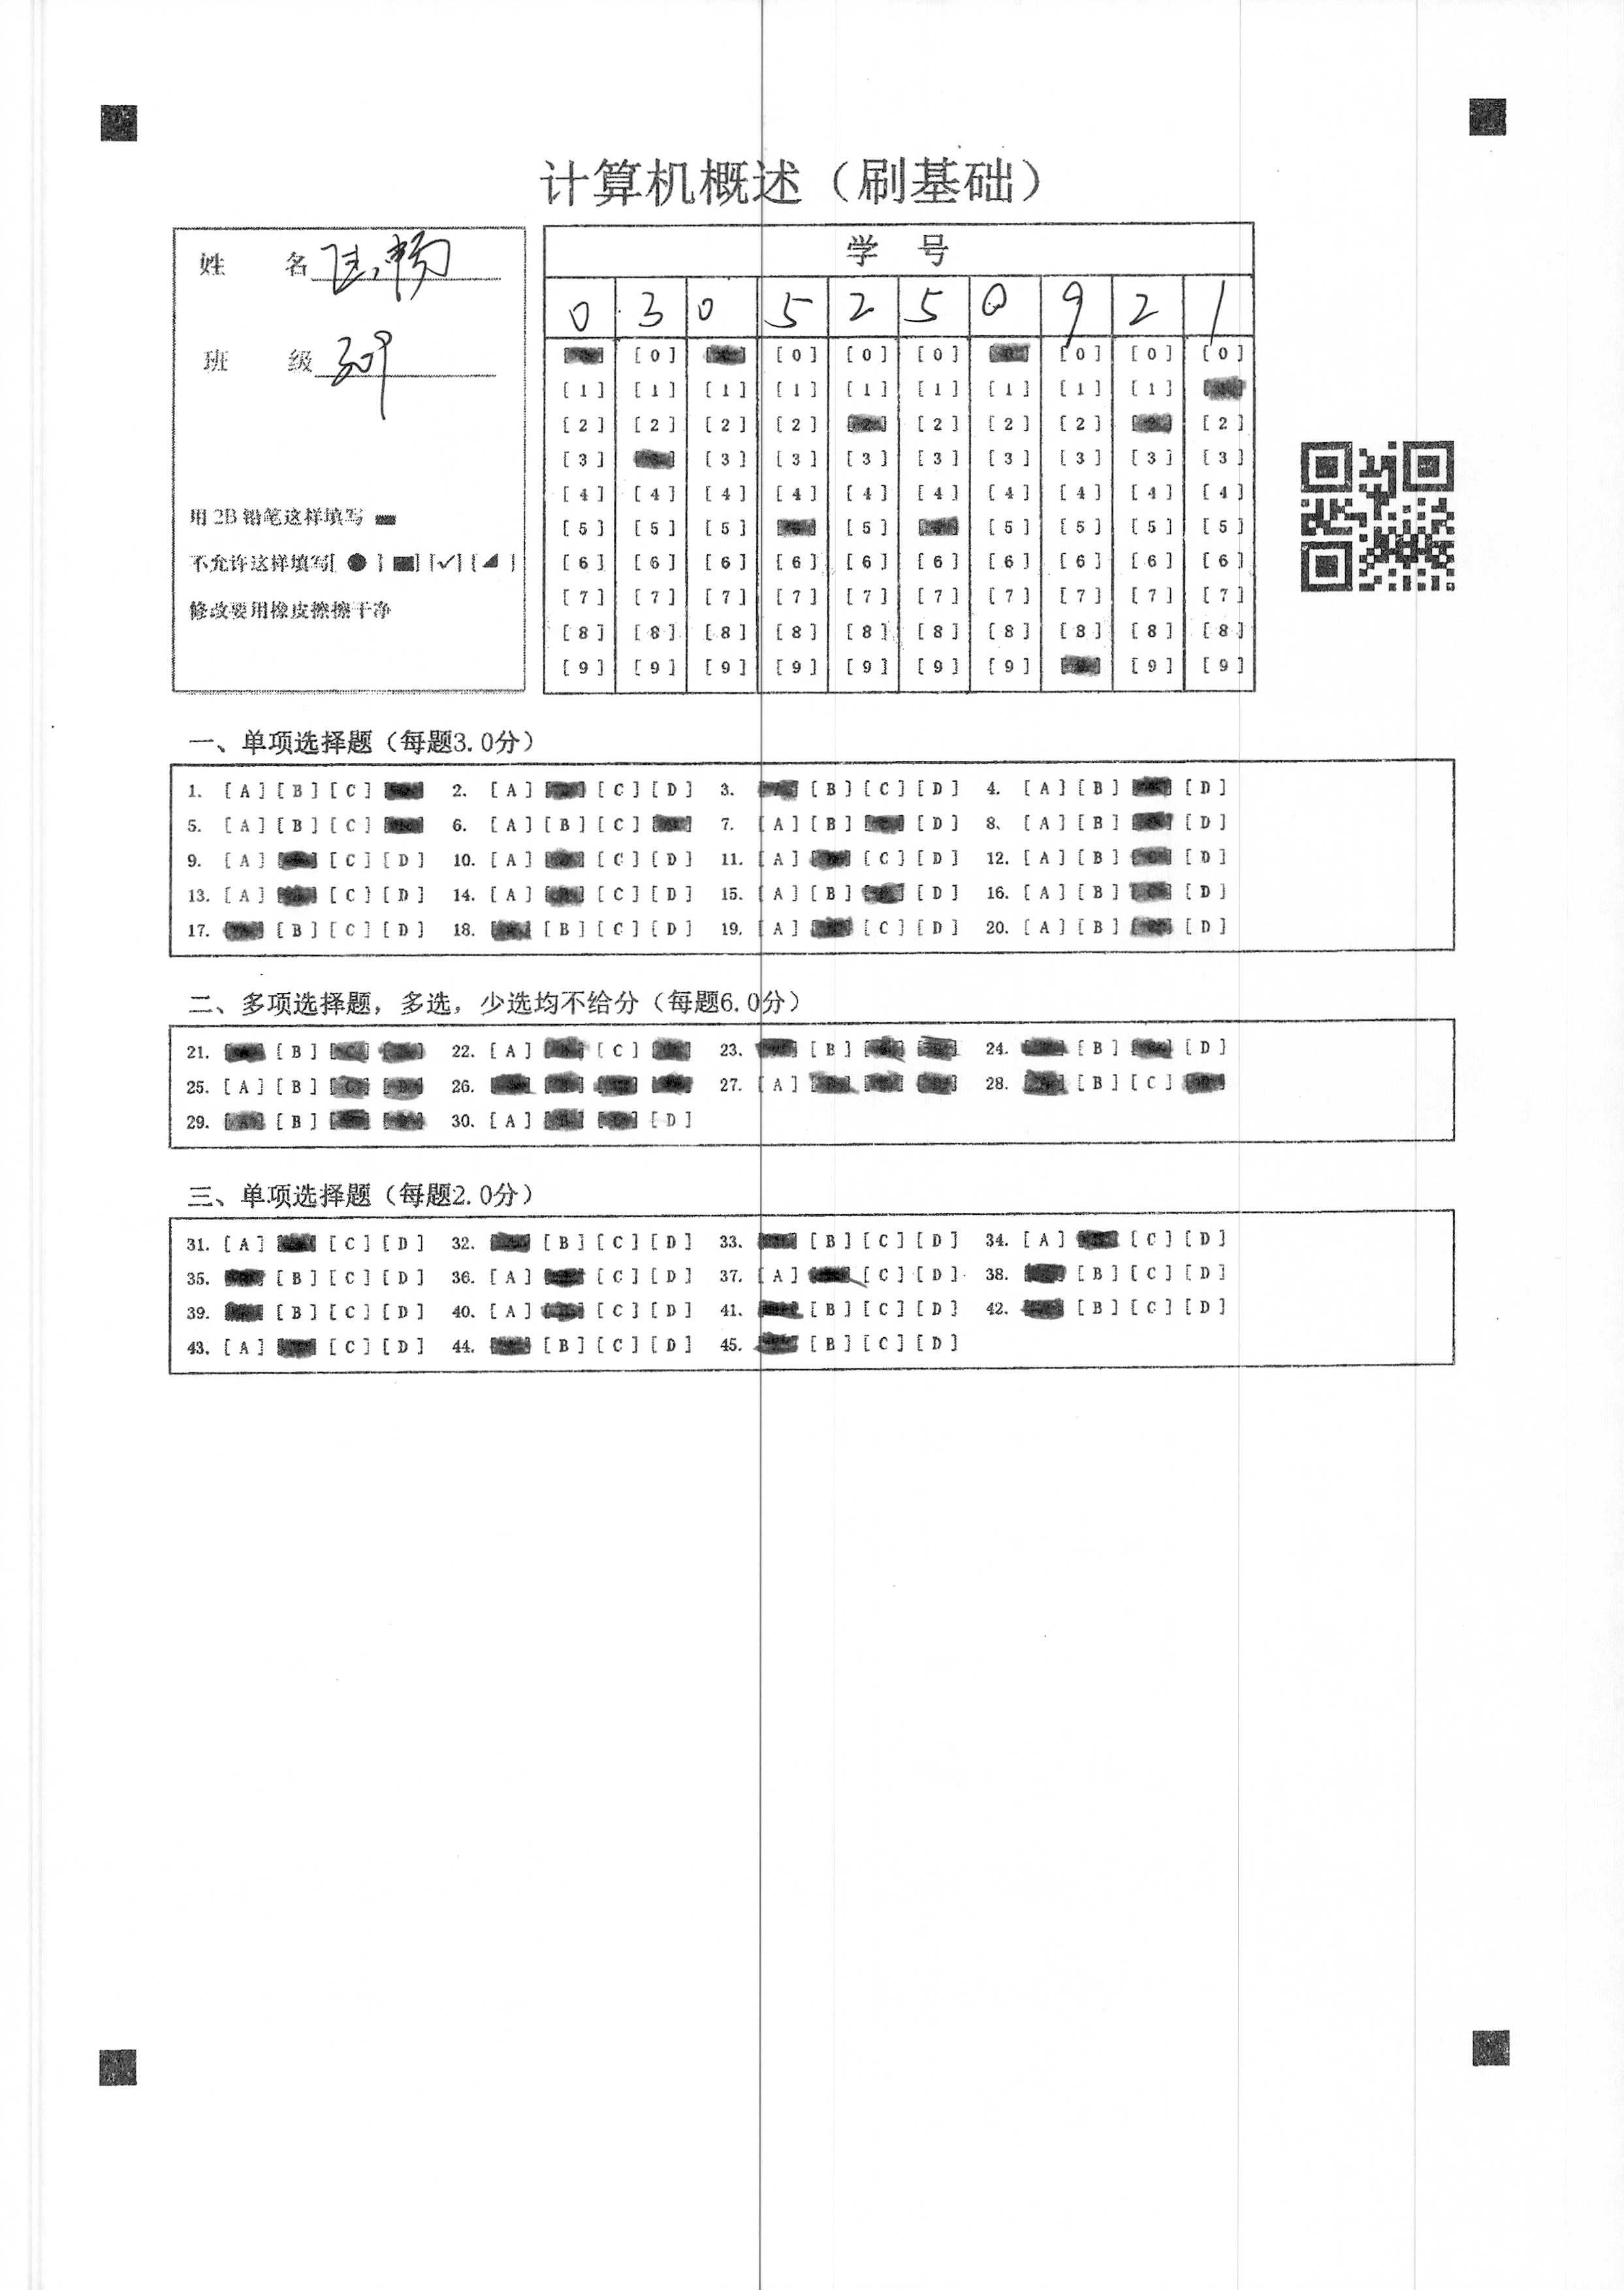 计算机概述（刷基础）
姓 名
班 级 309
用 2B 铅笔这样填写
不允许这样填写[ ● ] [■] [✓] [◢ ]
修改要用橡皮擦擦干净
学 号
0 3 0 5 2 5 0 9 2 1
[0] [0] [0] [0] [0] [0] [0]
[1] [1] [1] [1] [1] [1] [1] [1] [1]
[2] [2] [2] [2] [2] [2] [2] [2]
[3] [3] [3] [3] [3] [3] [3] [3] [3]
[4] [4] [4] [4] [4] [4] [4] [4] [4] [4]
[5] [5] [5] [5] [5] [5] [5] [5]
[6] [6] [6] [6] [6] [6] [6] [6] [6] [6]
[7] [7] [7] [7] [7] [7] [7] [7] [7] [7]
[8] [8] [8] [8] [8] [8] [8] [8] [8] [8]
[9] [9] [9] [9] [9] [9] [9] [9] [9]
一、单项选择题（每题3.0分）
1. [A] [B] [C] 2. [A] [C] [D] 3. [B] [C] [D] 4. [A] [B] [D]
5. [A] [B] [C] 6. [A] [B] [C] 7. [A] [B] [D] 8. [A] [B] [D]
9. [A] [C] [D] 10. [A] [C] [D] 11. [A] [C] [D] 12. [A] [B] [D]
13. [A] [C] [D] 14. [A] [C] [D] 15. [A] [B] [D] 16. [A] [B] [D]
17. [B] [C] [D] 18. [B] [C] [D] 19. [A] [C] [D] 20. [A] [B] [D]
二、多项选择题，多选，少选均不给分（每题6.0分）
21. [B] 22. [A] [C] 23. [B] 24. [B] [D]
25. [A] [B] 26. 27. [A] 28. [B] [C]
29. [B] 30. [A] [D]
三、单项选择题（每题2.0分）
31. [A] [C] [D] 32. [B] [C] [D] 33. [B] [C] [D] 34. [A] [C] [D]
35. [B] [C] [D] 36. [A] [C] [D] 37. [A] [C] [D] 38. [B] [C] [D]
39. [B] [C] [D] 40. [A] [C] [D] 41. [B] [C] [D] 42. [B] [C] [D]
43. [A] [C] [D] 44. [B] [C] [D] 45. [B] [C] [D]